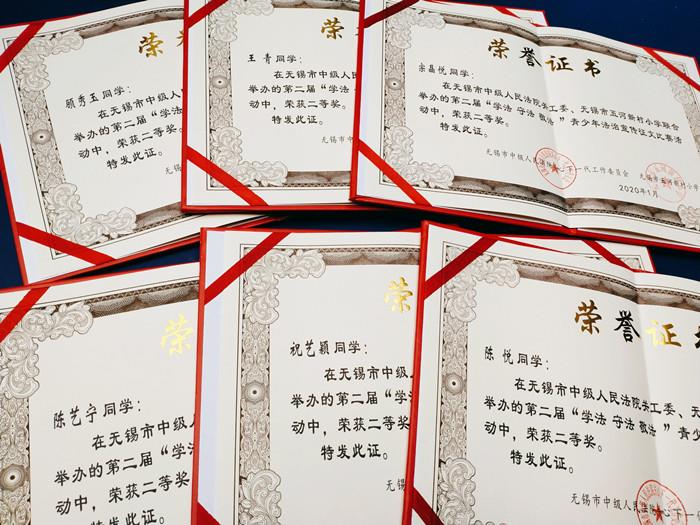 荣誉
顾秀玉同学：
在无锡市中级人民
举办的第二届“学法
动中，荣获二等奖。
特发此证。
无锡
荣
王 青同学：
在无锡市中级人民法院
举办的第二届“学法
动中，荣获二等奖。
特发此证。
无锡市中
荣誉证书
宗晶悦同学：
在无锡市中级人民法院关工委、无锡市五河新村小学联合
举办的第二届“学法 守法 敬法 ”青少年法治宣传征文比赛活
动中，荣获二等奖。
特发此证。
无锡市中级人民法院关心下一代工作委员会 无锡市五河新村小
2020年1月
荣
陈艺宁同学：
在无锡市中级
举办的第二届“学法
动中，荣获二等奖
特发此证。
荣
祝艺颖同学：
在无锡市中级人
举办的第二届“学
动中，荣获二等奖
特发此证。
无锡
荣誉证书
陈 悦同学：
在无锡市中级人民法院关工委、无
举办的第二届“学法 守法 敬法 ”青少
动中，荣获二等奖。
特发此证。
无锡市中级人民法院关心下一代